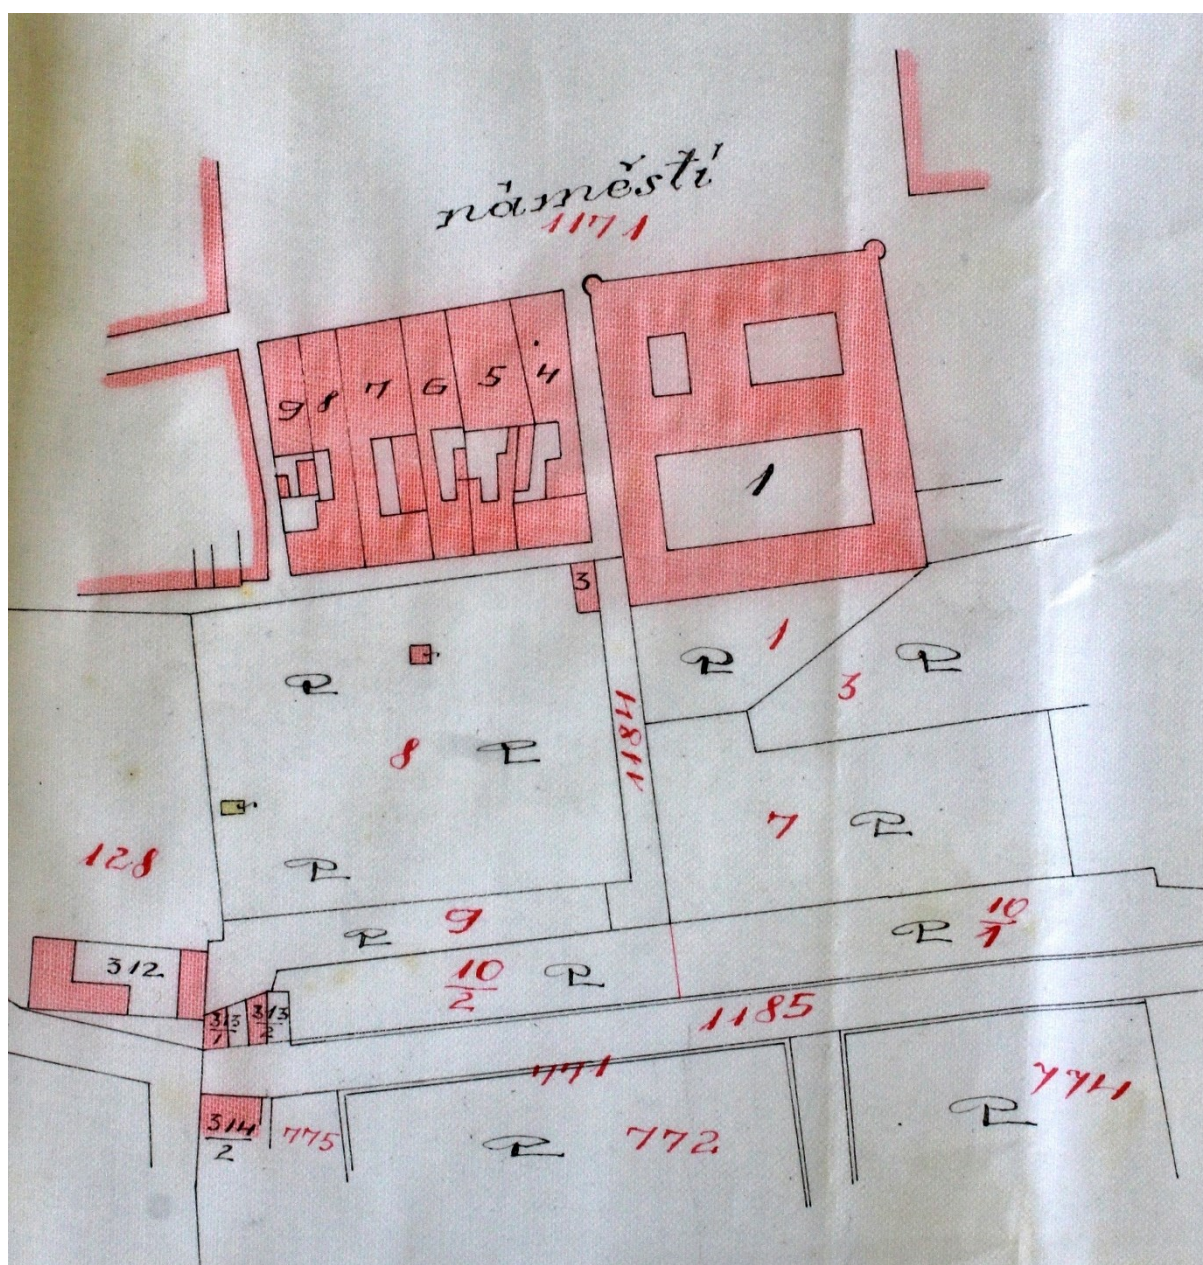 náměstí
1171
9
8
7
6
5
4
1
3
1
3
1184
8
7
128
9
10/1
10/2
312
313/1
313/2
1185
771
771
314/2
775
772